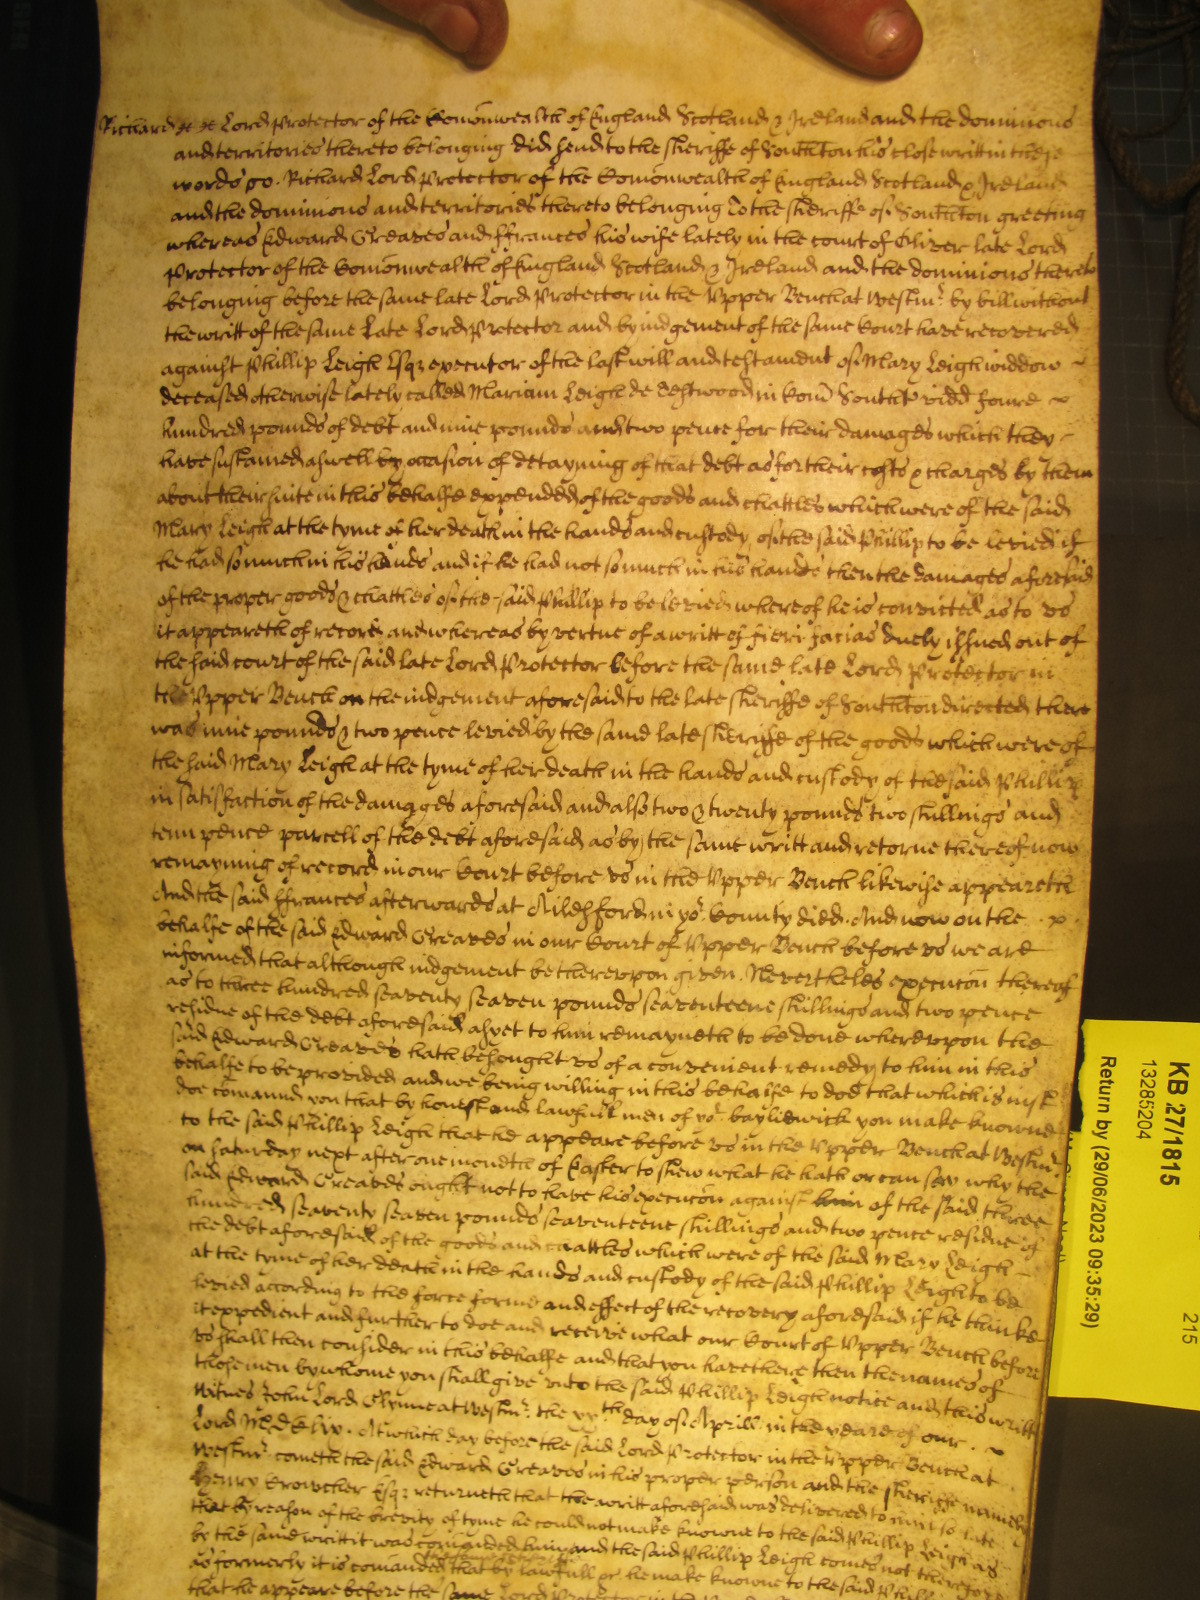 Richard &c &c Lord Protector of the Comonwealth of England Scotland & Ireland and the dominions
and territories thereto belonging did send to the Sheriffe of Southton his close writt in these
words so. Richard Lord Protector of the Comonwealth of England Scotland & Ireland
and the dominions and territories thereto belonging To the Sheriffe of Southton greeting
whereas Edward Greaves and ffrances his wife lately in the court of Oliver late Lord
Protector of the Comonwealth of England Scotland & Ireland and the dominions thereto
belonging before the same late Lord Protector in the Upper Bench at Westmr by bill without
the writt of the same Late Lord Protector and by iudgement of the same Court have recovered
against Phillip Leigh Esqr executor of the last will and testament of Mary Leigh widdow
deceased otherwise lately called Mariam Leigh de Testwood in Com Southt vidd foure
hundred pounds of debt and nine pounds and two pence for their damages which they
have sustained aswell by occasion of detayning of that debt as for their costs & charges by them
about their suite in this behalfe expended of the goods and chattles which were of the said
Mary Leigh at the tyme of her death in the hands and custody of the said Phillip to be levied if
he had so much in his hands and if he had not so much in his hands then the damages aforesaid
of the proper goods & chattles of the said Phillip to be levied whereof he is convicted as to vs
it appeareth of record and whereas by vertue of a writt of fieri facias duely issued out of
the said court of the said late Lord Protector before the same late Lord Protector in
the Upper Bench on the iudgement aforesaid to the late Sheriffe of Southton directed there
was nine pounds & two pence levied by the same late Sheriffe of the goods which were of
the said Mary Leigh at the tyme of her death in the hands and custody of the said Phillip
in satisfaction of the damages aforesaid and also two & twenty pounds two shillings and
tenn pence parcell of the debt aforesaid as by the same writt and retorne thereof now
remayning of record in our Court before vs in the Upper Bench likewise appeareth
And the said ffrances afterwards at Ailesford in yor County died. And now on the
behalfe of the said Edward Greaves in our Court of Upper Bench before vs we are
informed that although iudgement be therevpon given. Nevertheles execucon thereof
as to three hundred seaventy seaven pounds seaventeene shillings and two pence
residue of the debt aforesaid as yet to him remayneth to be done wherevpon the
said Edward Greaves hath besought vs of a convenient remedy to him in this
behalfe to be provided and we being willing in this behalfe to doe that which is iust
doe comannd you that by honest and lawfull men of yor bayliewick you make knowne
to the said Phillip Leigh that he appeare before vs in the Upper Bench at Westmr
on Saturday next after one moneth of Easter to shew what he hath or can say why the
said Edward Greaves ought not to have his execucon against him of the said three
hundred seaventy seaven pounds seaventeene shillings and two pence residue of
the debt aforesaid of the goods and chattles which were of the said Mary Leigh
at the tyme of her death in the hands and custody of the said Phillip Leigh to be
levied according to the force forme and effect of the recovery aforesaid if he thinke
it expedient and further to doe and receive what our Court of Upper Bench before
vs shall then consider in this behalfe and that you have there then the names of
those men by whome you shall give vnto the said Phillip Leigh notice and this writt
Witnes John Lord Glynne at Westmr. the xxth day of Aprill in the yeare of our
Lord MDClix. At which day before the said Lord Protector in the Upper Bench at
Westmr cometh the said Edward Greaves in his proper person and the Sheriffe namely
Henry Crowcher Esqr returneth that the writt aforesaid was delivered to him so late
that by reason of the brevity of tyme he could not make knowne to the said Phillip Leigh as
by the same writt it was comanded him and the said Phillip Leigh comes not therefore
as formerly it is comanded that by lawfull &c he make knowne to the said
that he appeare before the same Lord Protector in the
KB 27/1815
13285204
215
Return by (29/06/2023 09:35:29)